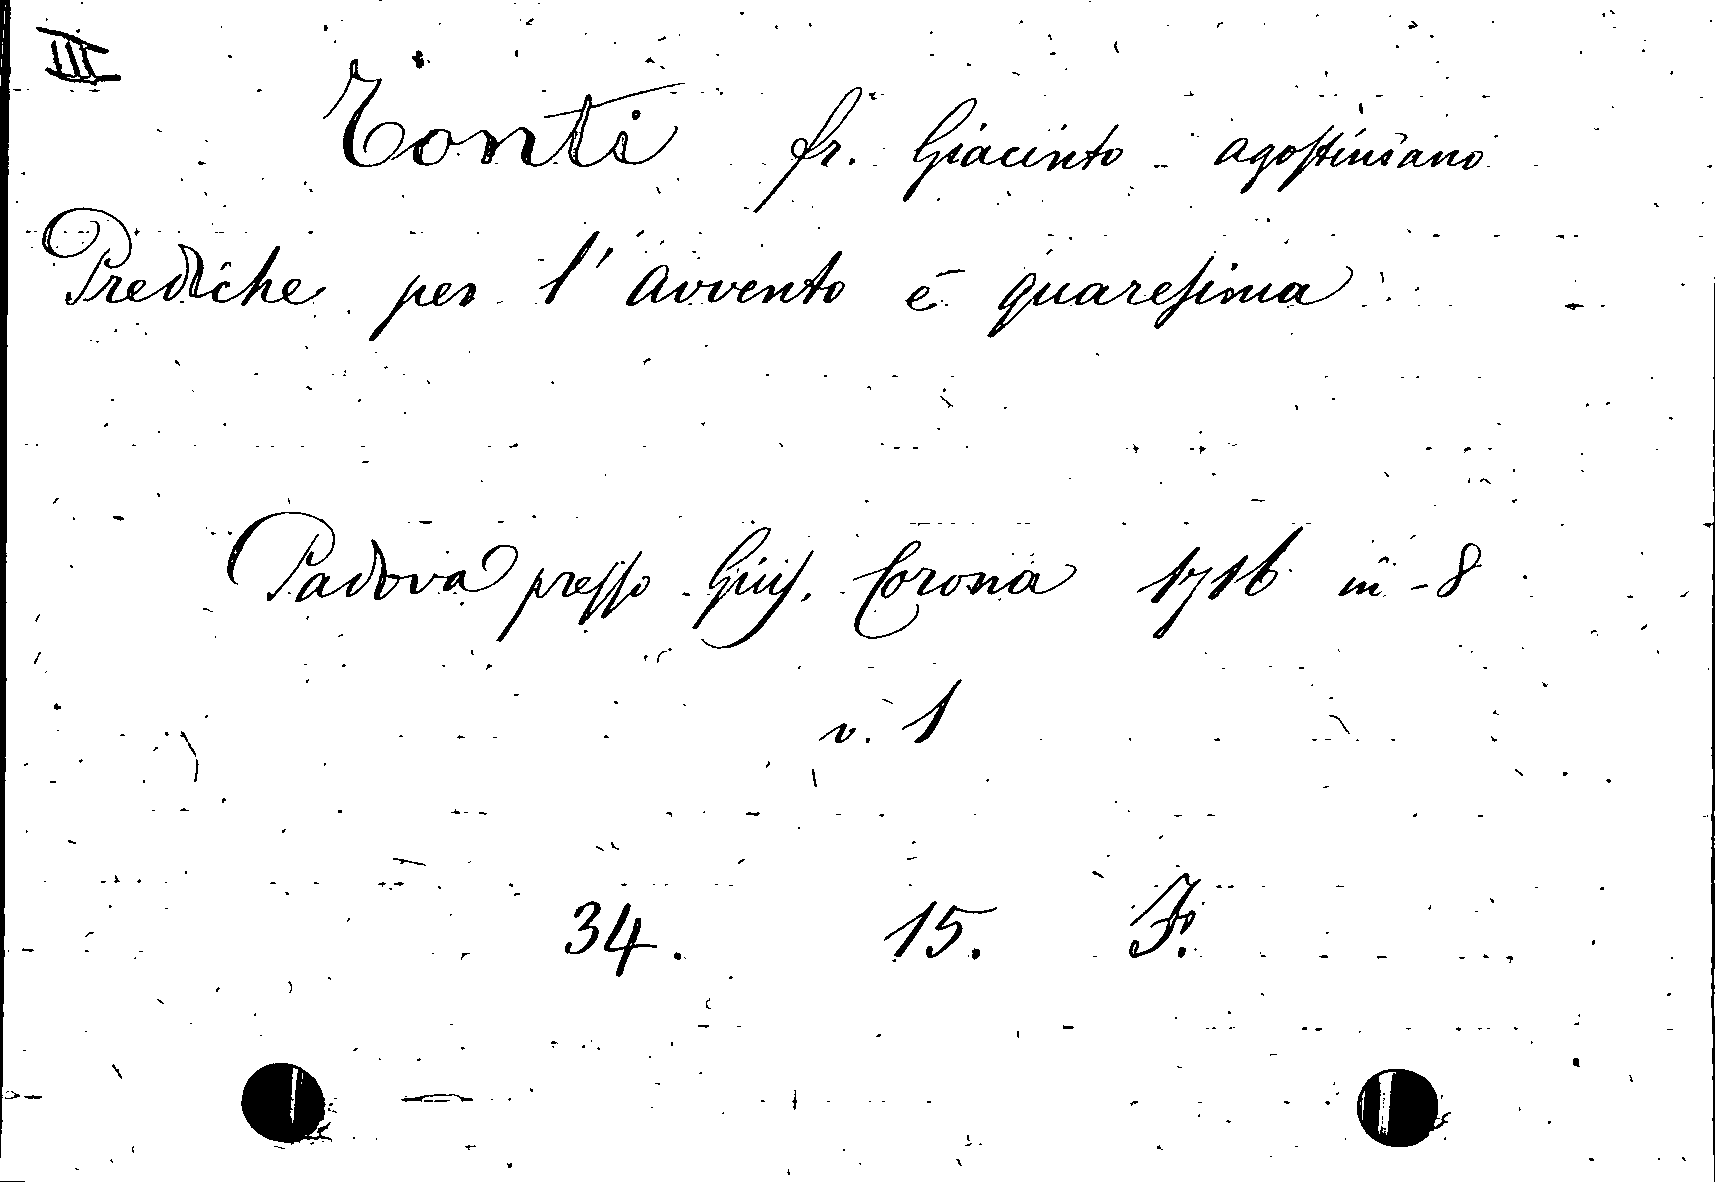 III
Tonti fr. Giacinto agostiniano
Prediche per l' avvento e quaresima
Padova presso Gius. Corona 1716 in-8
v. 1
34. 15. F.